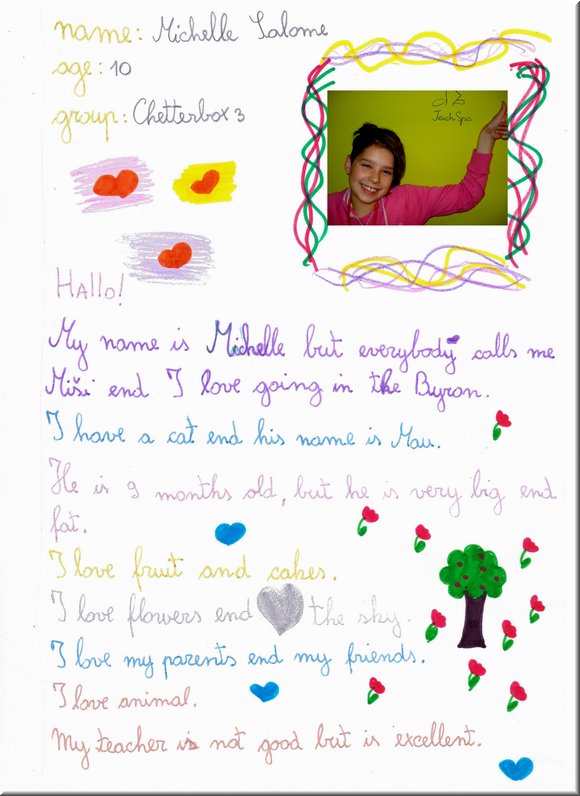 name: Michelle Salome
age: 10
group: Chetterbox 3
Teach Spa
Hallo!
My name is Michelle but everybody calls me
Miši end I love going in the Byron.
I have a cat end his name is Mau.
He is 9 months old, but he is very big end
fat.
I love fruit and cakes.
I love flowers end the sky.
I love my parents end my friends.
I love animal.
My teacher is not good but is excellent.